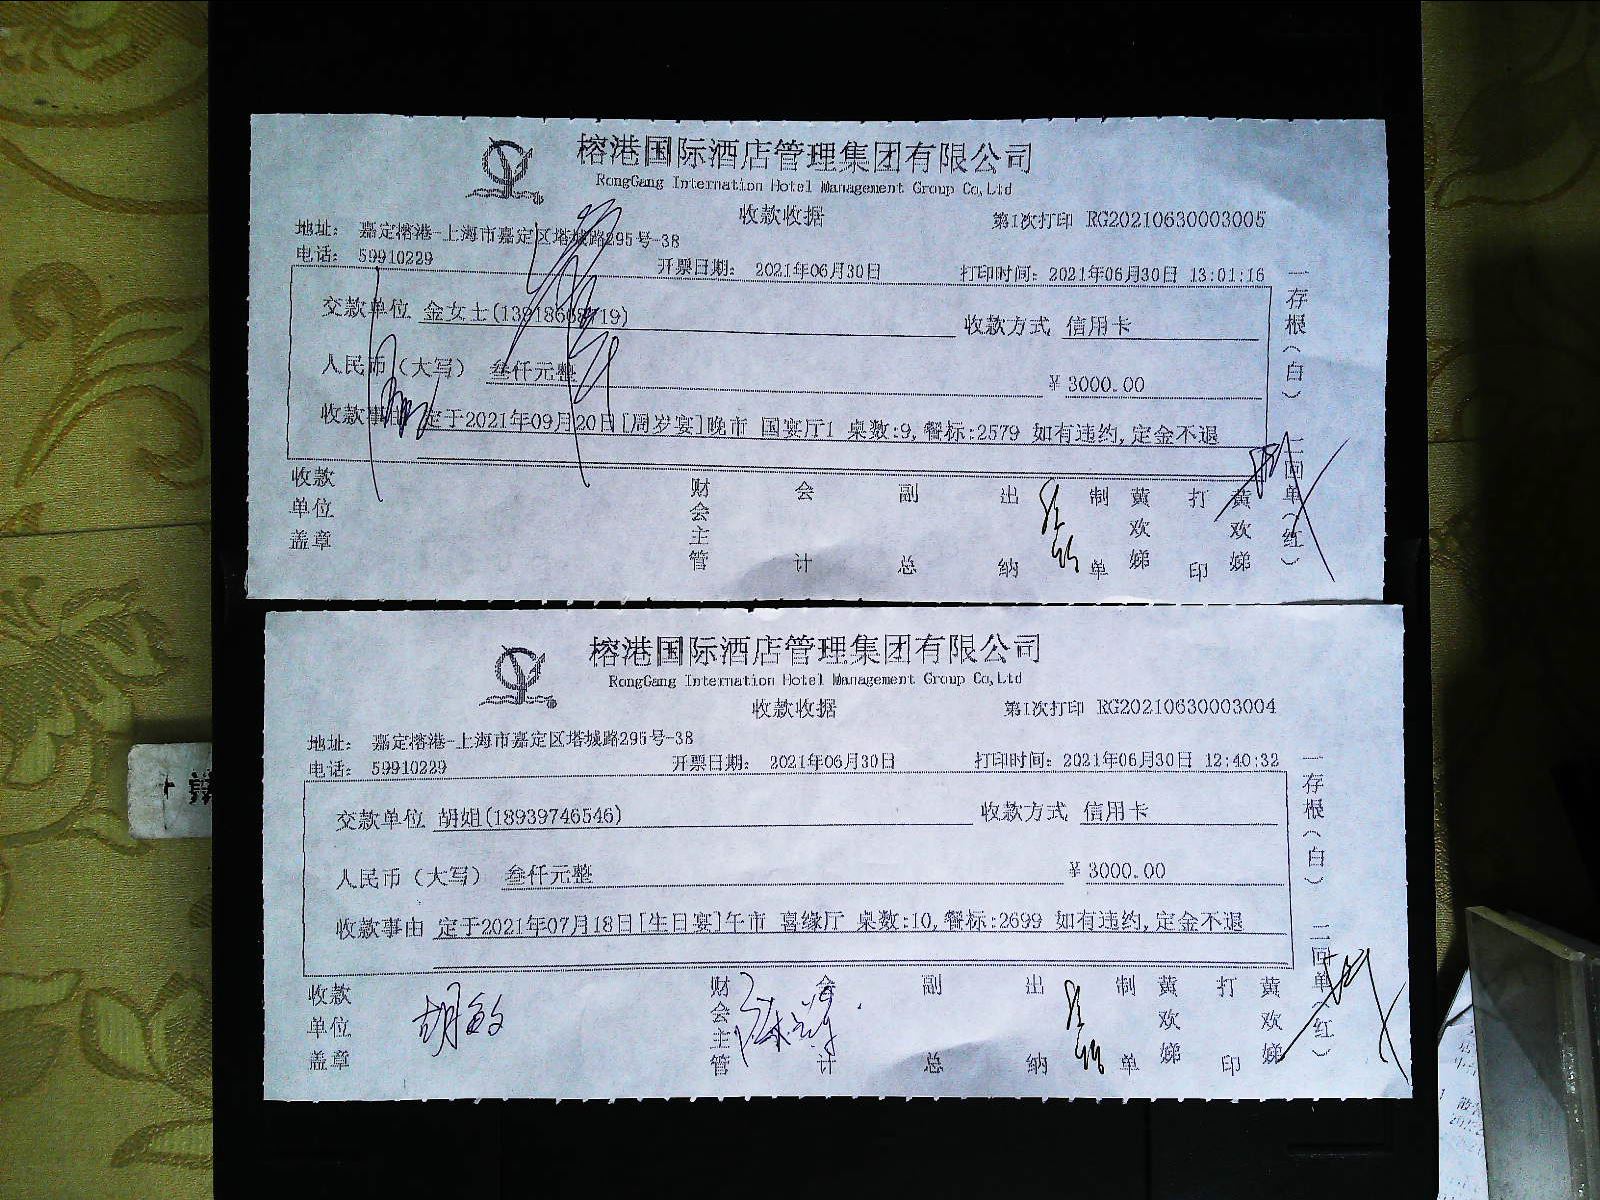 榕港国际酒店管理集团有限公司
RongGang Internation Hotel Management Group Co,Ltd
收款收据
第1次打印 RG20210630003005
地址: 嘉定榕港-上海市嘉定区塔城路295号-38
电话: 59910229
开票日期: 2021年06月30日
打印时间: 2021年06月30日 13:01:16
交款单位 金女士
收款方式 信用卡
人民币（大写） 叁仟元整
¥ 3000.00
收款事由 定于2021年09月20日[周岁宴]晚市 国宴厅1 桌数:9,餐标:2579 如有违约,定金不退
收款单位盖章
财会主管
会计
副总
出纳
制单
黄欢娣
打印
黄欢娣
一存根（白）
二回单（红）
榕港国际酒店管理集团有限公司
RongGang Internation Hotel Management Group Co,Ltd
收款收据
第1次打印 RG20210630003004
地址: 嘉定榕港-上海市嘉定区塔城路295号-38
电话: 59910229
开票日期: 2021年06月30日
打印时间: 2021年06月30日 12:40:32
交款单位 胡姐(18939746546)
收款方式 信用卡
人民币（大写） 叁仟元整
¥ 3000.00
收款事由 定于2021年07月18日[生日宴]午市 喜缘厅 桌数:10,餐标:2699 如有违约,定金不退
收款单位盖章
胡敏
财会主管
会计
副总
出纳
制单
黄欢娣
打印
黄欢娣
一存根（白）
二回单（红）